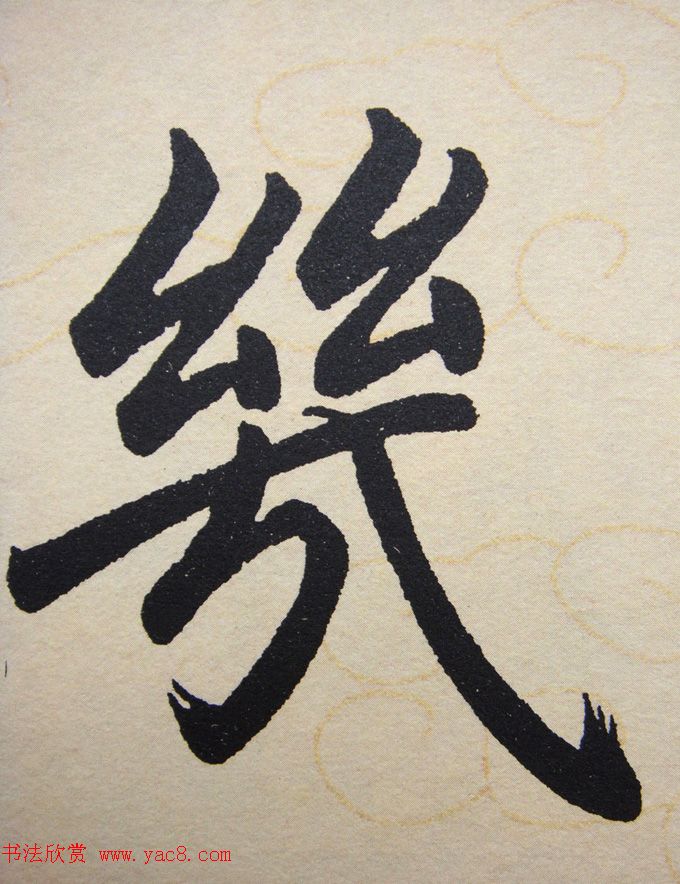 幾
书法欣赏 www.yac8.com